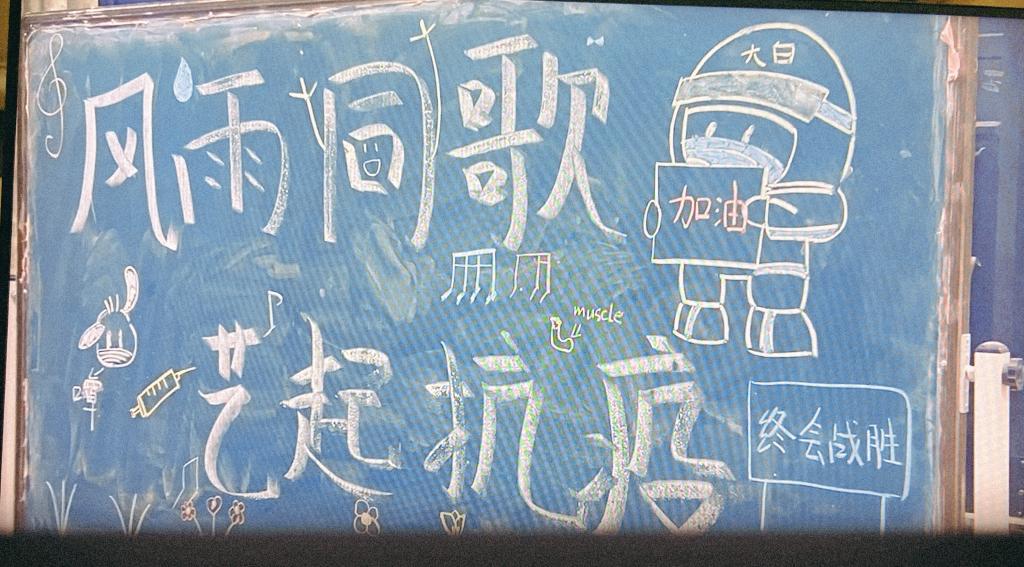 风雨同歌
大白
加油
muscle
艺起抗疫
终会战胜